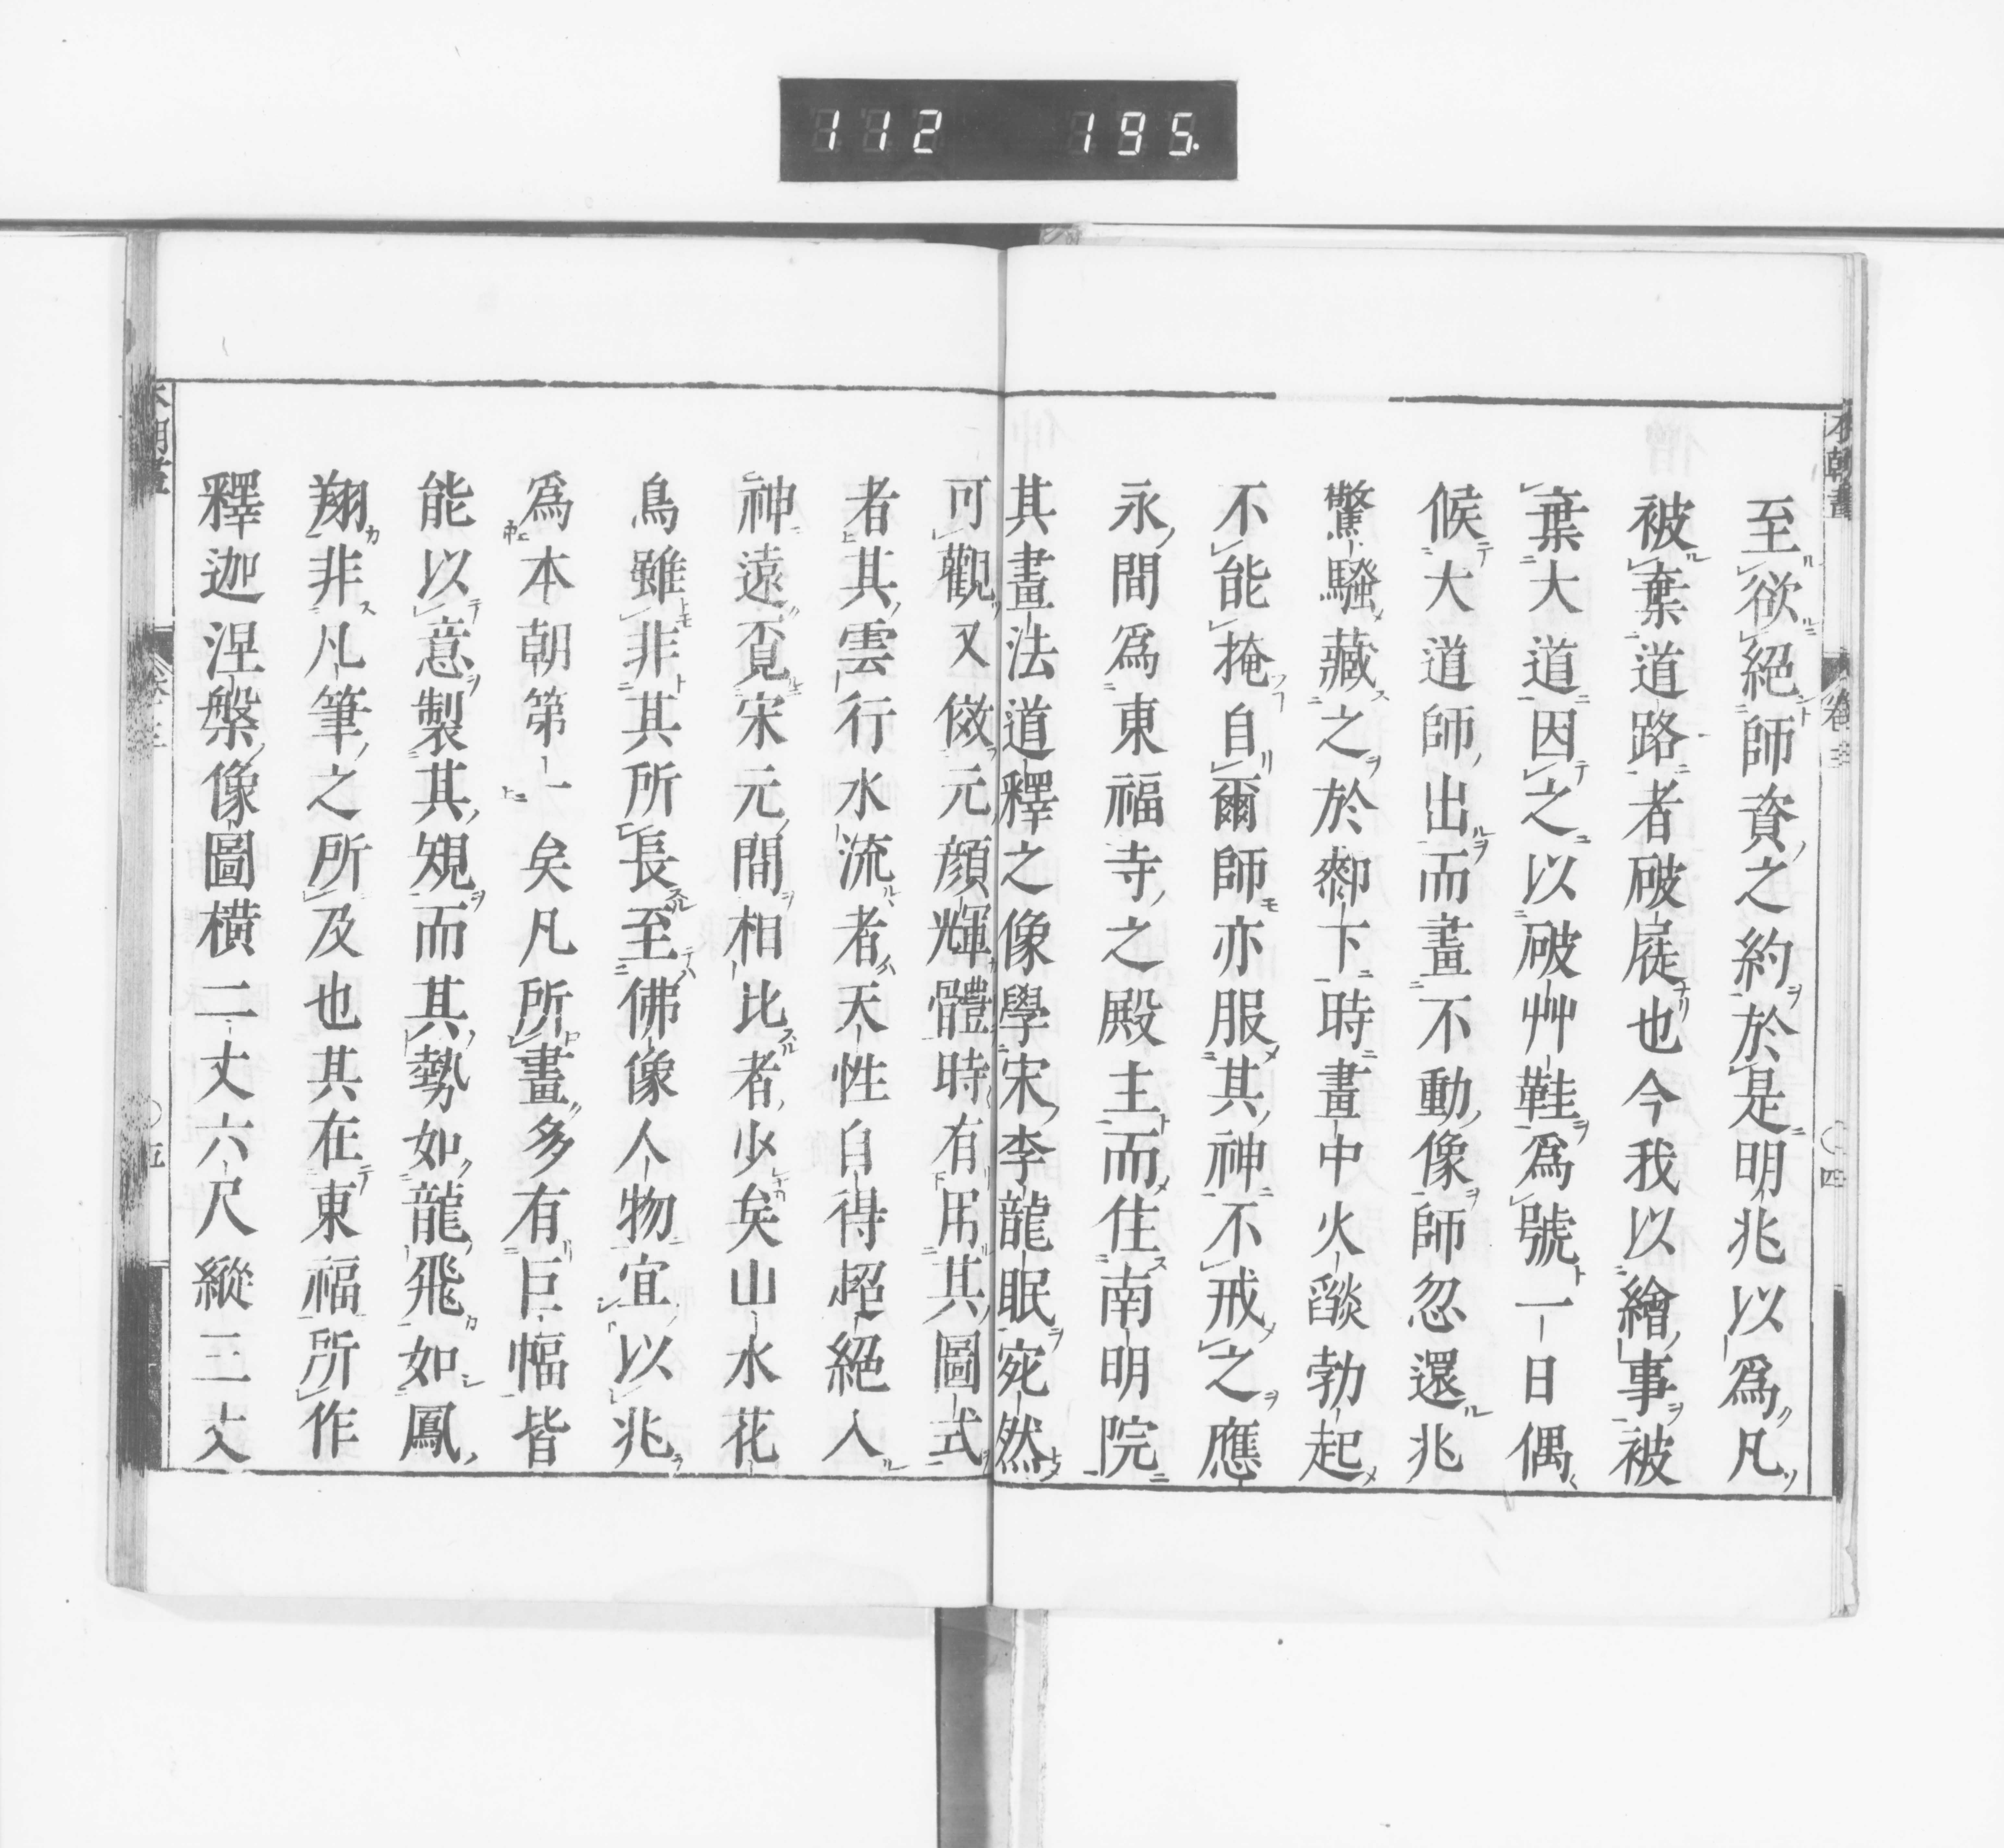 112 195.
本朝畫 卷三 四
至欲絕師資之約於是明兆以爲凡
被棄道路者破屣也今我以繪事被
棄大道因之以破艸鞋爲號一日偶
候大道師出而畫不動像師忽還兆
驚騷藏之於御下時畫中火燄勃起
不能掩自爾師亦服其神不戒之應
永間爲東福寺之殿主而住南明院
其畫法道釋之像學宋李龍眠宛然
可觀又倣元顔輝體時有用其圖式
者其雲行水流者天性自得超絕入
神遠覓宋元間相比者少矣山水花
鳥雖非其所長至佛像人物宜以兆
爲本朝第一矣凡所畫多有巨幅皆
能以意製其規而其勢如龍飛如鳳
翔非凡筆之所及也其在東福所作
釋迦涅槃像圖橫二丈六尺縱三丈
本朝畫 卷三 五